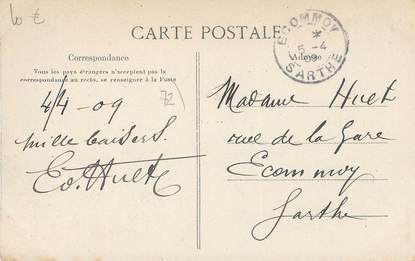 10 €
CARTE POSTALE
ECOMMOY
5 - 4
09
SARTHE
Correspondance
Adresse
Tous les pays étrangers n'acceptent pas la
correspondance au recto, se renseigner à la Poste
72
4/4 - 09
Mille baisers.
Ed. Huet
Madame Huet
rue de la Gare
Ecommoy
Sarthe